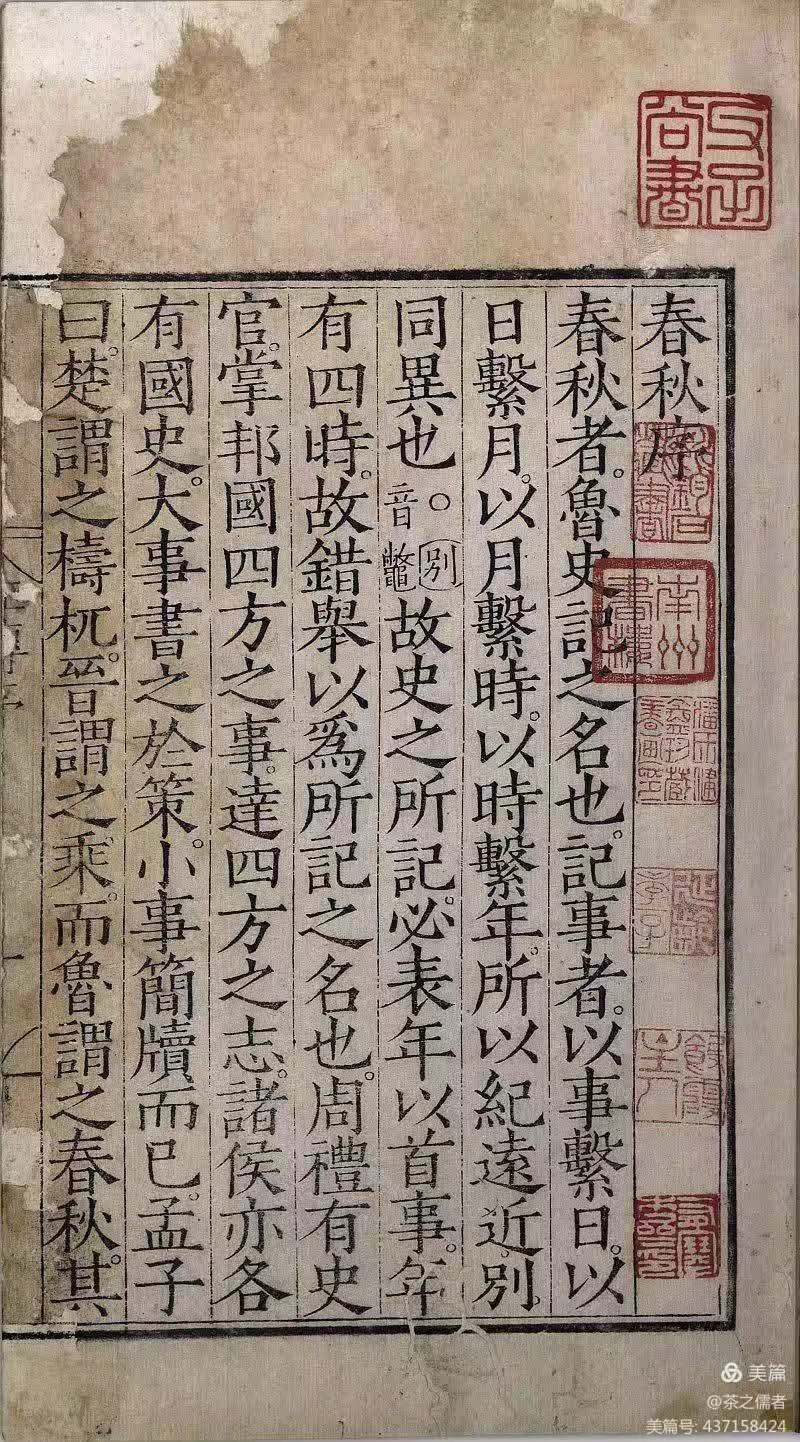 春秋序
春秋者。魯史記之名也。記事者。以事繫日。以
日繫月。以月繫時。以時繫年。所以紀遠近。別
同異也。○別音鼈故史之所記。必表年以首事。年
有四時。故錯舉以爲所記之名也。周禮有史
官。掌邦國四方之事。達四方之志。諸侯亦各
有國史。大事書之於策。小事簡牘而已。孟子
曰。楚謂之檮杌。晉謂之乘。而魯謂之春秋。其
南州書樓
美篇
@茶之儒者
美篇号: 437158424